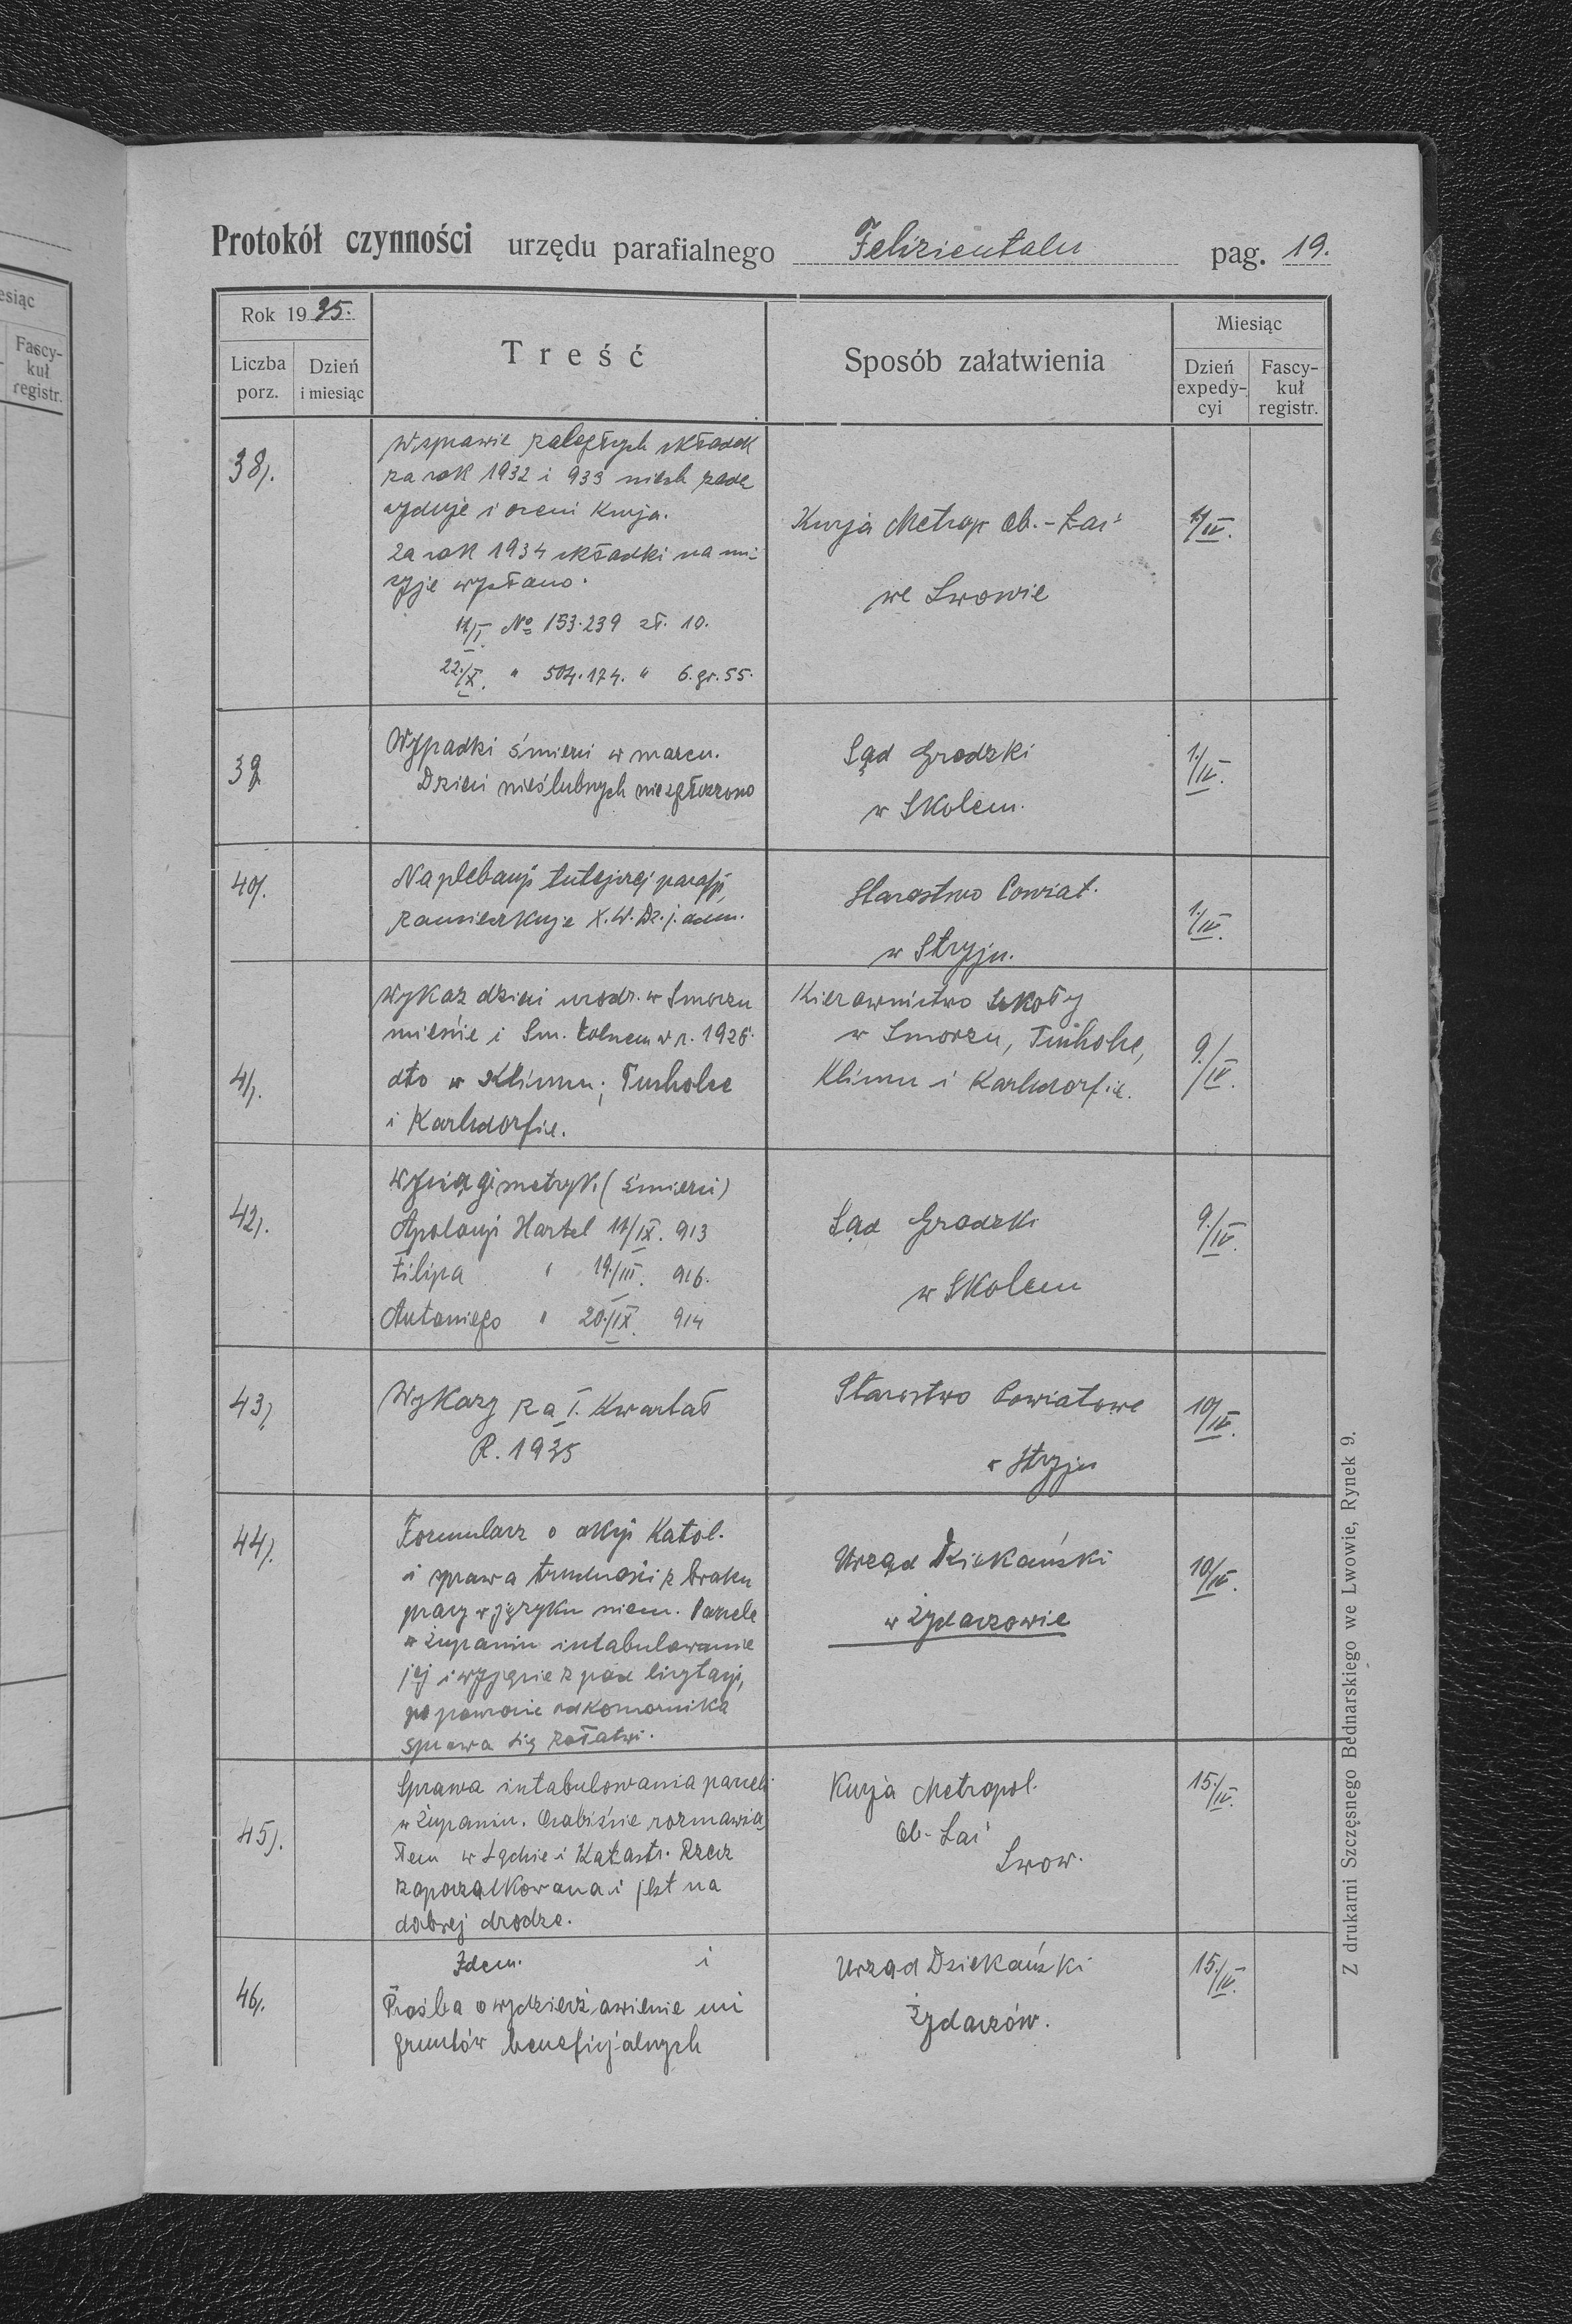 Protokół czynności urzędu parafialnego Felizientalu pag. 19.
Rok 1935.
Liczba porz.
Dzień i miesiąc
Treść
Sposób załatwienia
Miesiąc
Dzień expedycyi
Fascykuł registr.
38).
W sprawie zaległych składek
za rok 1932 i 933 niech zade
cyduje i oceni Kurja.
Za rok 1934 składki na mi
syje wysłano.
11/I. No 153.239 zł. 10.
22/X. " 504.174. " 6.gr.55.
Kurja Metrop ob.-Łać
we Lwowie
1/IV.
39
Wypadki śmierci w marcu.
Dzieci nieślubnych nie zgłoszono
Sąd Grodzki
w Skolem.
1./IV.
40).
Na plebanji tutejszej parafji
zamieszkuje X.W.Dz.j.adm.
Starostwo Powiat.
w Stryju.
1./IV.
41).
Wykaz dzieci urodz. w Smorzu
mieście i Sm. Dolnem w r. 1928.
dto w Klimcu; Tucholce
i Karlsdorfie.
Kierownictwo Szkoły
w Smorzu, Tucholce,
Klimcu i Karlsdorfie.
9./IV.
42).
Wyciągi metryk. (śmierci)
Apolonji Hartel 11/IX. 913
Filipa " 19./III. 916.
Antoniego " 20./IX. 914
Sąd Grodzki
w Skolem
9./IV.
43).
Wykazy za I. Kwartał
R. 1935
Starostwo Powiatowe
w Stryju
10/IV.
44).
Formularz o akcji Katol.
i sprawa trudności z braku
pracy w języku niem. Parcele
w Żupaniu intabulowanie
jej i wyjęcie z pod licytacji,
po powrocie od komornika
sprawa się załatwi.
Urząd Dziekański
w Żydaczowie
10/IV.
45).
Sprawa intabulowania parceli
w Żupaniu. Osobiście rozmawia
łem w Sądzie i Katastr. Rzecz
zaporządkowana i jest na
dobrej drodze.
Kurja Metropol.
Ob-Łać
Lwow.
15./IV.
46).
Idem. i
Prośba o wydzierżawienie mi
gruntów beneficjalnych
Urząd Dziekański
Żydaczów.
15./IV.
Z drukarni Szczęsnego Bednarskiego we Lwowie, Rynek 9.
esiąc
Fascy-
kuł
registr.